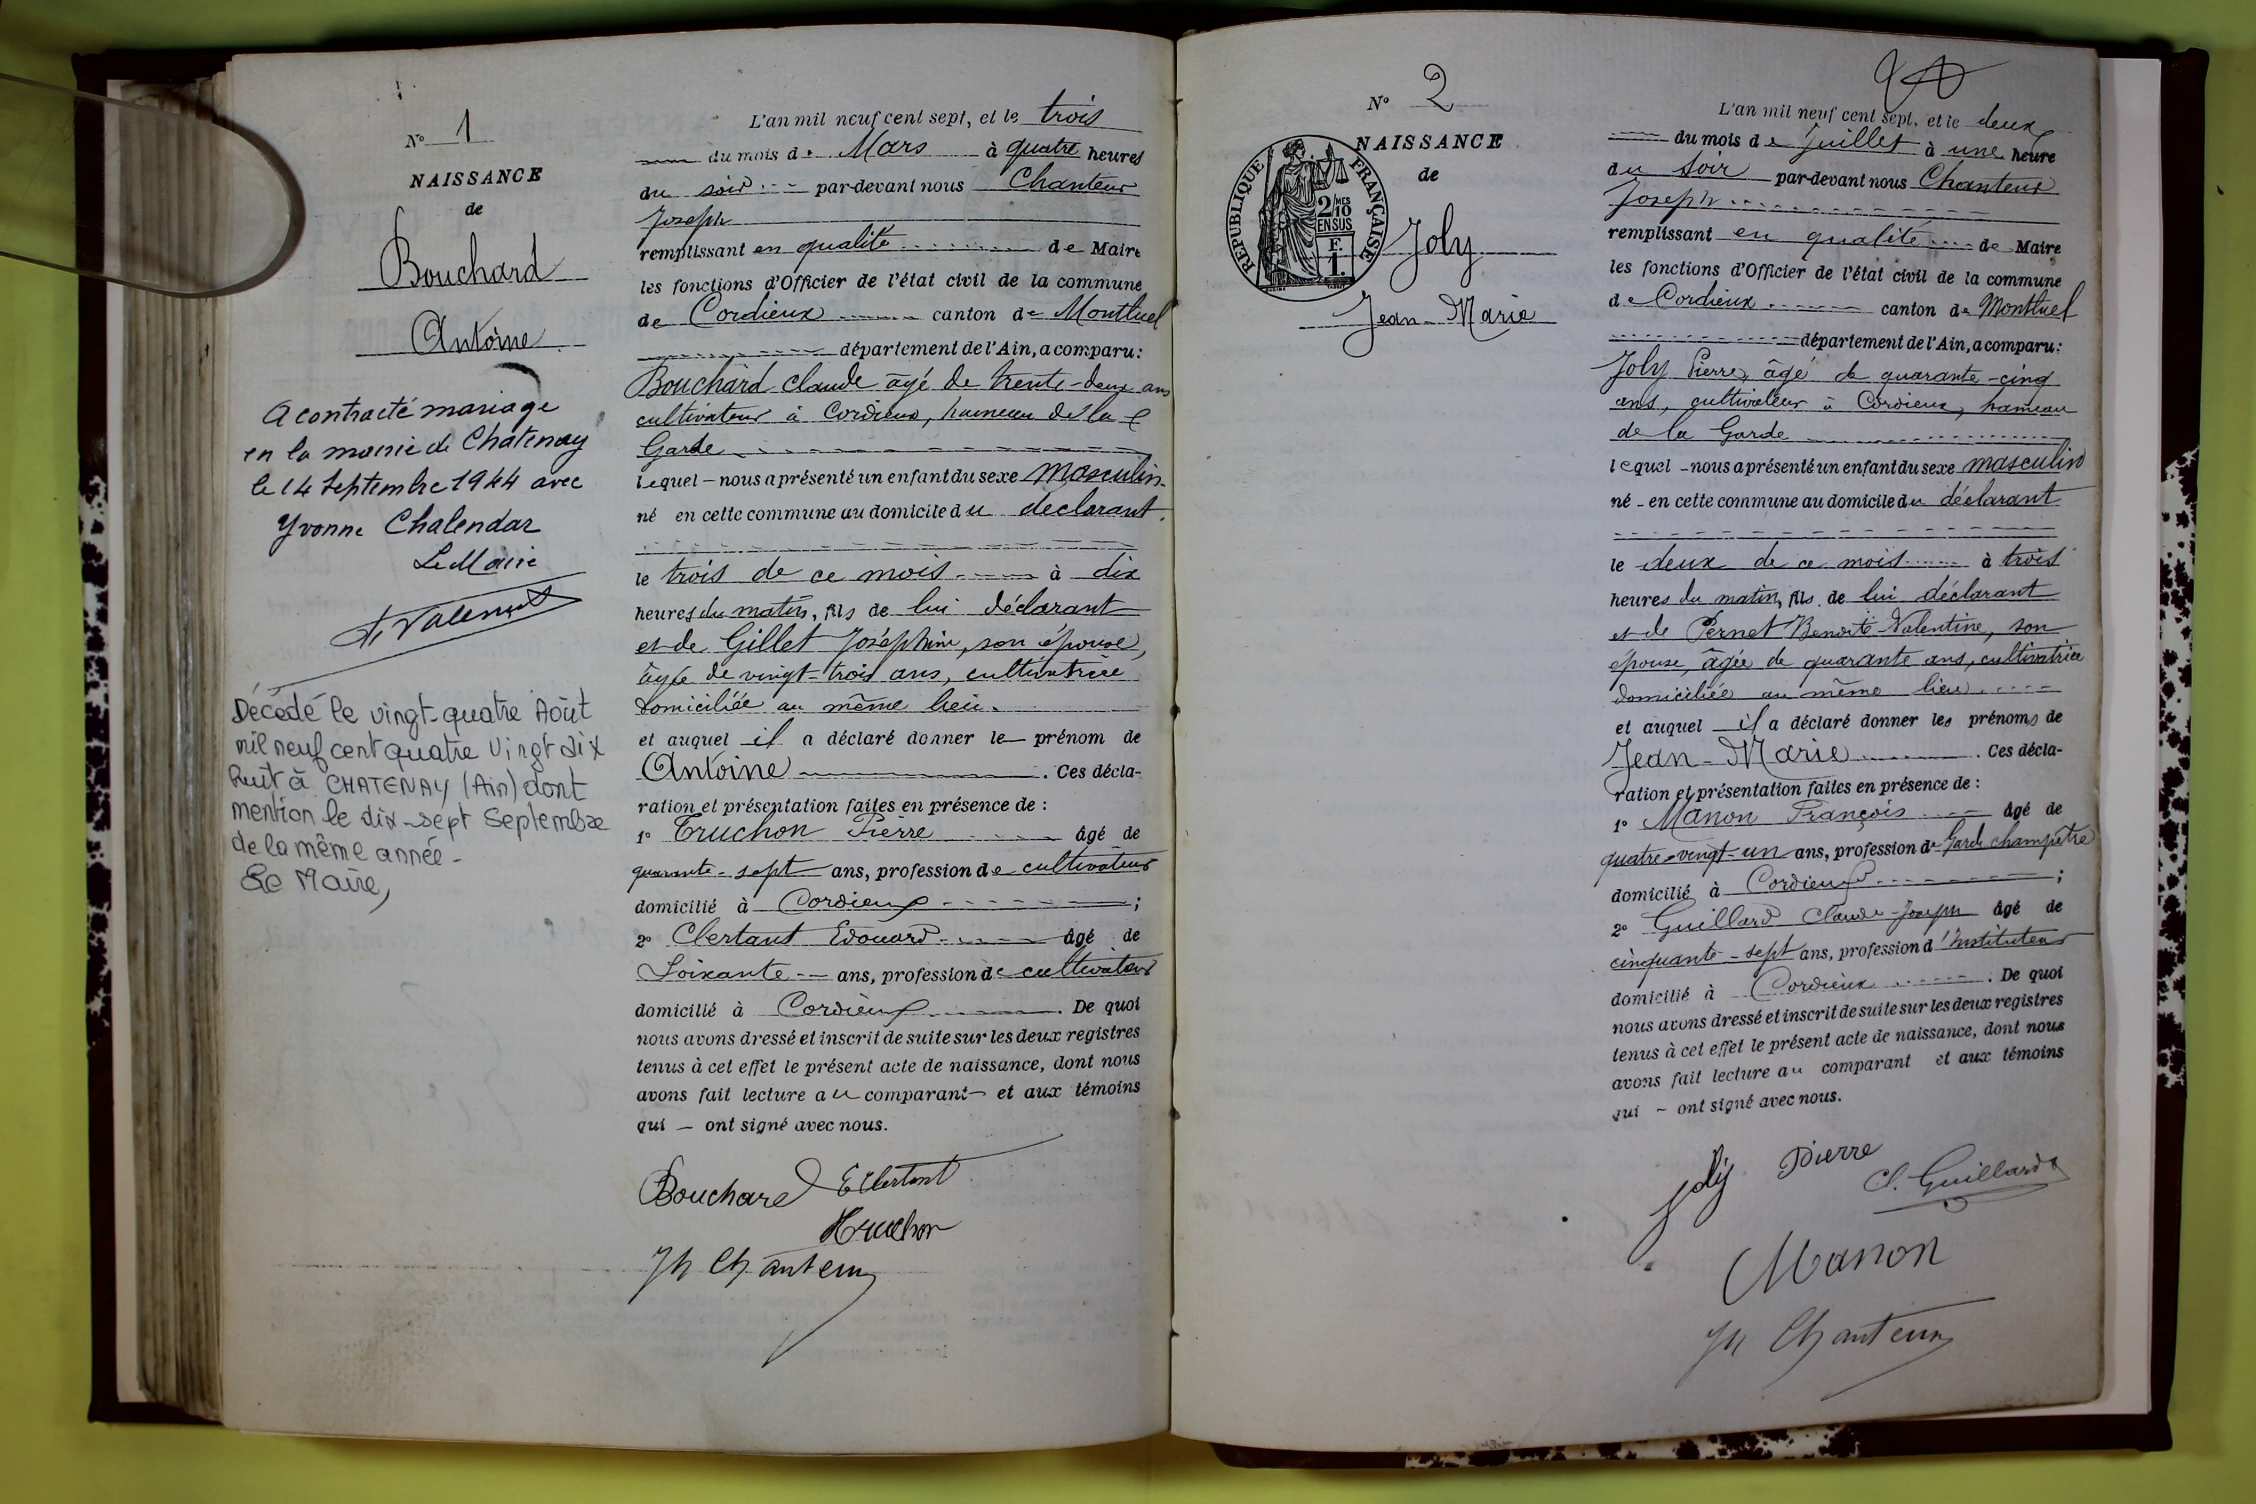 N° 1
NAISSANCE
de
Bouchard
Antoine
A contracté mariage
en la mairie de Chatenay
le 14 Septembre 1944 avec
Yvonne Chalendar
Le Maire
Décédé le vingt-quatre Août
mil neuf cent quatre vingt dix
huit à CHATENAY (Ain) dont
mention le dix-sept Septembre
de la même année-
Le Maire,
L'an mil neuf cent sept, et le trois
du mois de Mars à quatre heures
du soir par-devant nous Chanteur
Joseph
remplissant en qualité de Maire
les fonctions d'Officier de l'état civil de la commune
de Cordieux canton de Montluel
département de l'Ain, a comparu:
Bouchard Claude âgé de trente-deux ans
cultivateur à Cordieux, hameau de la
Garde
lequel nous a présenté un enfant du sexe masculin
né en cette commune au domicile du déclarant.
le trois de ce mois à dix
heures du matin, fils de lui déclarant
et de Gillet Joséphine, son épouse,
âgée de vingt-trois ans, cultivatrice
domiciliée au même lieu.
et auquel il a déclaré donner le prénom de
Antoine . Ces décla-
ration et présentation faites en présence de :
1° Truchon Pierre âgé de
quarante-sept ans, profession de cultivateur
domicilié à Cordieux ;
2° Clertant Edouard âgé de
Soixante ans, profession de cultivateur
domicilié à Cordieux . De quoi
nous avons dressé et inscrit de suite sur les deux registres
tenus à cet effet le présent acte de naissance, dont nous
avons fait lecture au comparant et aux témoins
qui ont signé avec nous.
Bouchard E Clertant
Truchon
Jh Chanteur
N° 2
NAISSANCE
de
RÉPUBLIQUE FRANÇAISE
2/10 MES
EN SUS
F.
1.
Joly
Jean-Marie
L'an mil neuf cent sept, et le deux
du mois de Juillet à une heure
du soir par-devant nous Chanteur
Joseph
remplissant en qualité de Maire
les fonctions d'Officier de l'état civil de la commune
de Cordieux canton de Montluel
département de l'Ain, a comparu:
Joly Pierre, âgé de quarante-cinq
ans, cultivateur à Cordieux, hameau
de la Garde
lequel nous a présenté un enfant du sexe masculin
né en cette commune au domicile du déclarant
le deux de ce mois à trois
heures du matin, fils de lui déclarant
et de Pernet Benoite Valentine, son
épouse, âgée de quarante ans, cultivatrice
domiciliée au même lieu
et auquel il a déclaré donner les prénoms de
Jean-Marie . Ces décla-
ration et présentation faites en présence de :
1° Manon François âgé de
quatre-vingt-un ans, profession de Garde champêtre
domicilié à Cordieux ;
2° Guillard Claude-Joseph âgé de
cinquante-sept ans, profession d'Instituteur
domicilié à Cordieux . De quoi
nous avons dressé et inscrit de suite sur les deux registres
tenus à cet effet le présent acte de naissance, dont nous
avons fait lecture au comparant et aux témoins
qui ont signé avec nous.
Joly Pierre
Cl. Guillard
Manon
Jh Chanteur